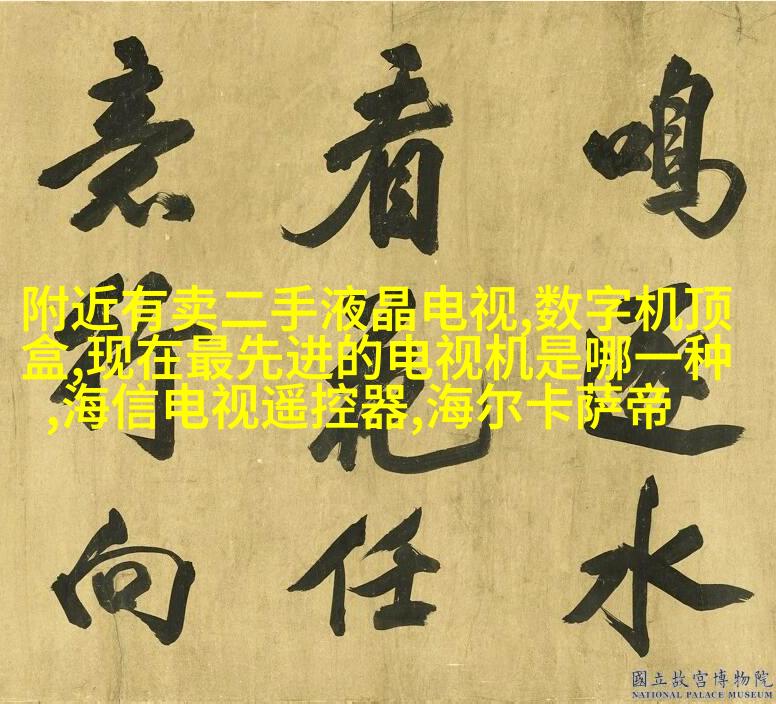 附近有卖二手液晶电视,数字机顶
盒,现在最先进的电视机是哪一种
,海信电视遥控器,海尔卡萨帝
鳴逐水
看花任
意向
國立故宮博物院
NATIONAL PALACE MUSEUM